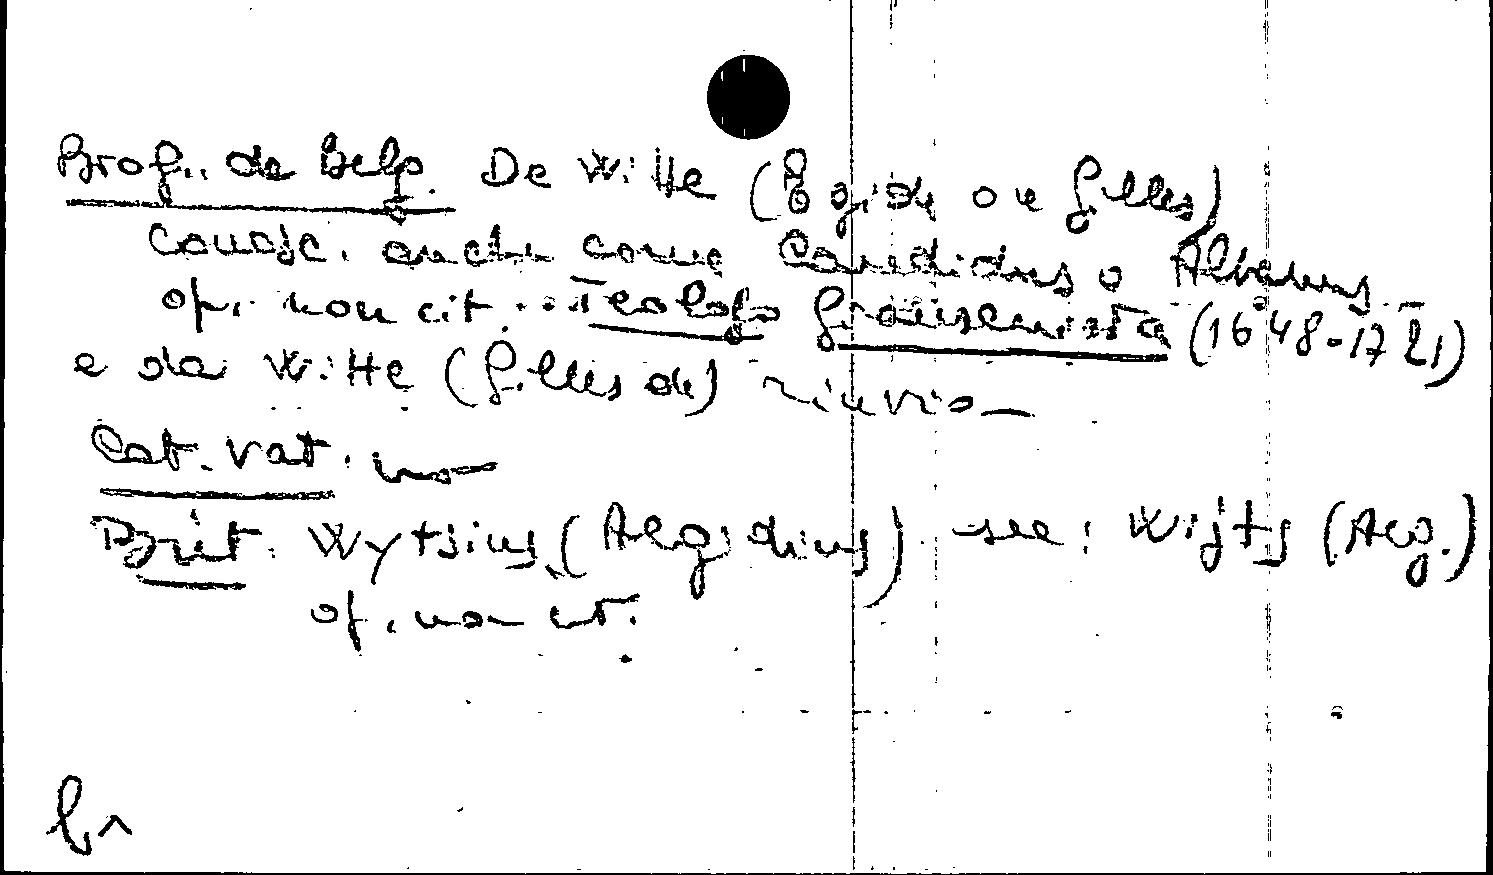 Biog. de Belg. De Witte (Egide ou Gilles)
conosc. anche come Candidus o Albanus
op. non cit. .. Teologo giansenista (1648-1721)
e da Witte (Gilles de) rinvio
Cat. Vat. no
Brit. Wytsius (Aegidius) see: Wijts (Aeg.)
op. non cit.